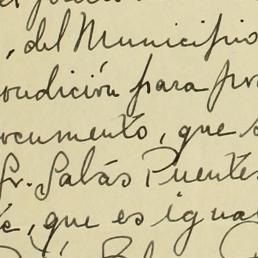 , del Municipio
condición para pro
ocumento, que s
Sr. Sabás Puentes
te, que es igual